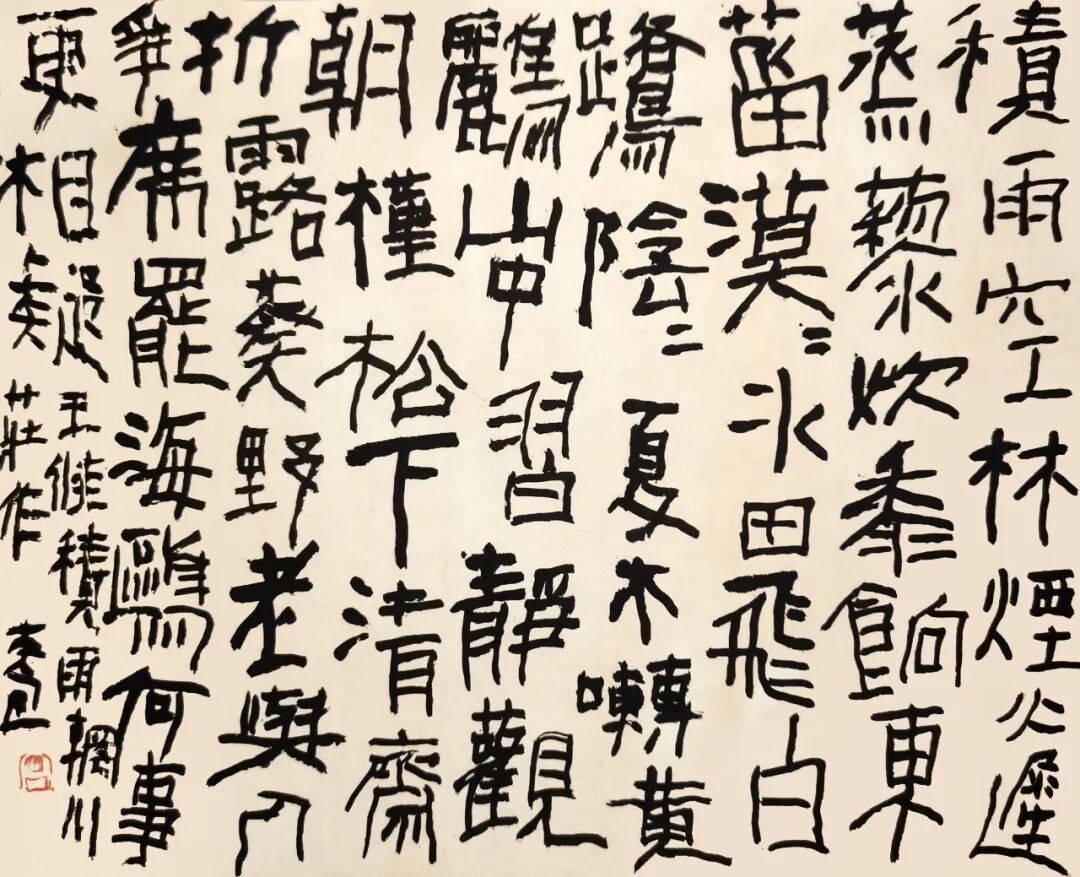 積雨空林煙火遲
蒸藜炊黍餉東
菑漠〻水田飛白
鷺陰〻夏木囀黃
鸝山中習靜觀
朝槿松下清齋
折露葵野老與人
爭席罷海鷗何事
更相疑
王維積雨輞川
莊作